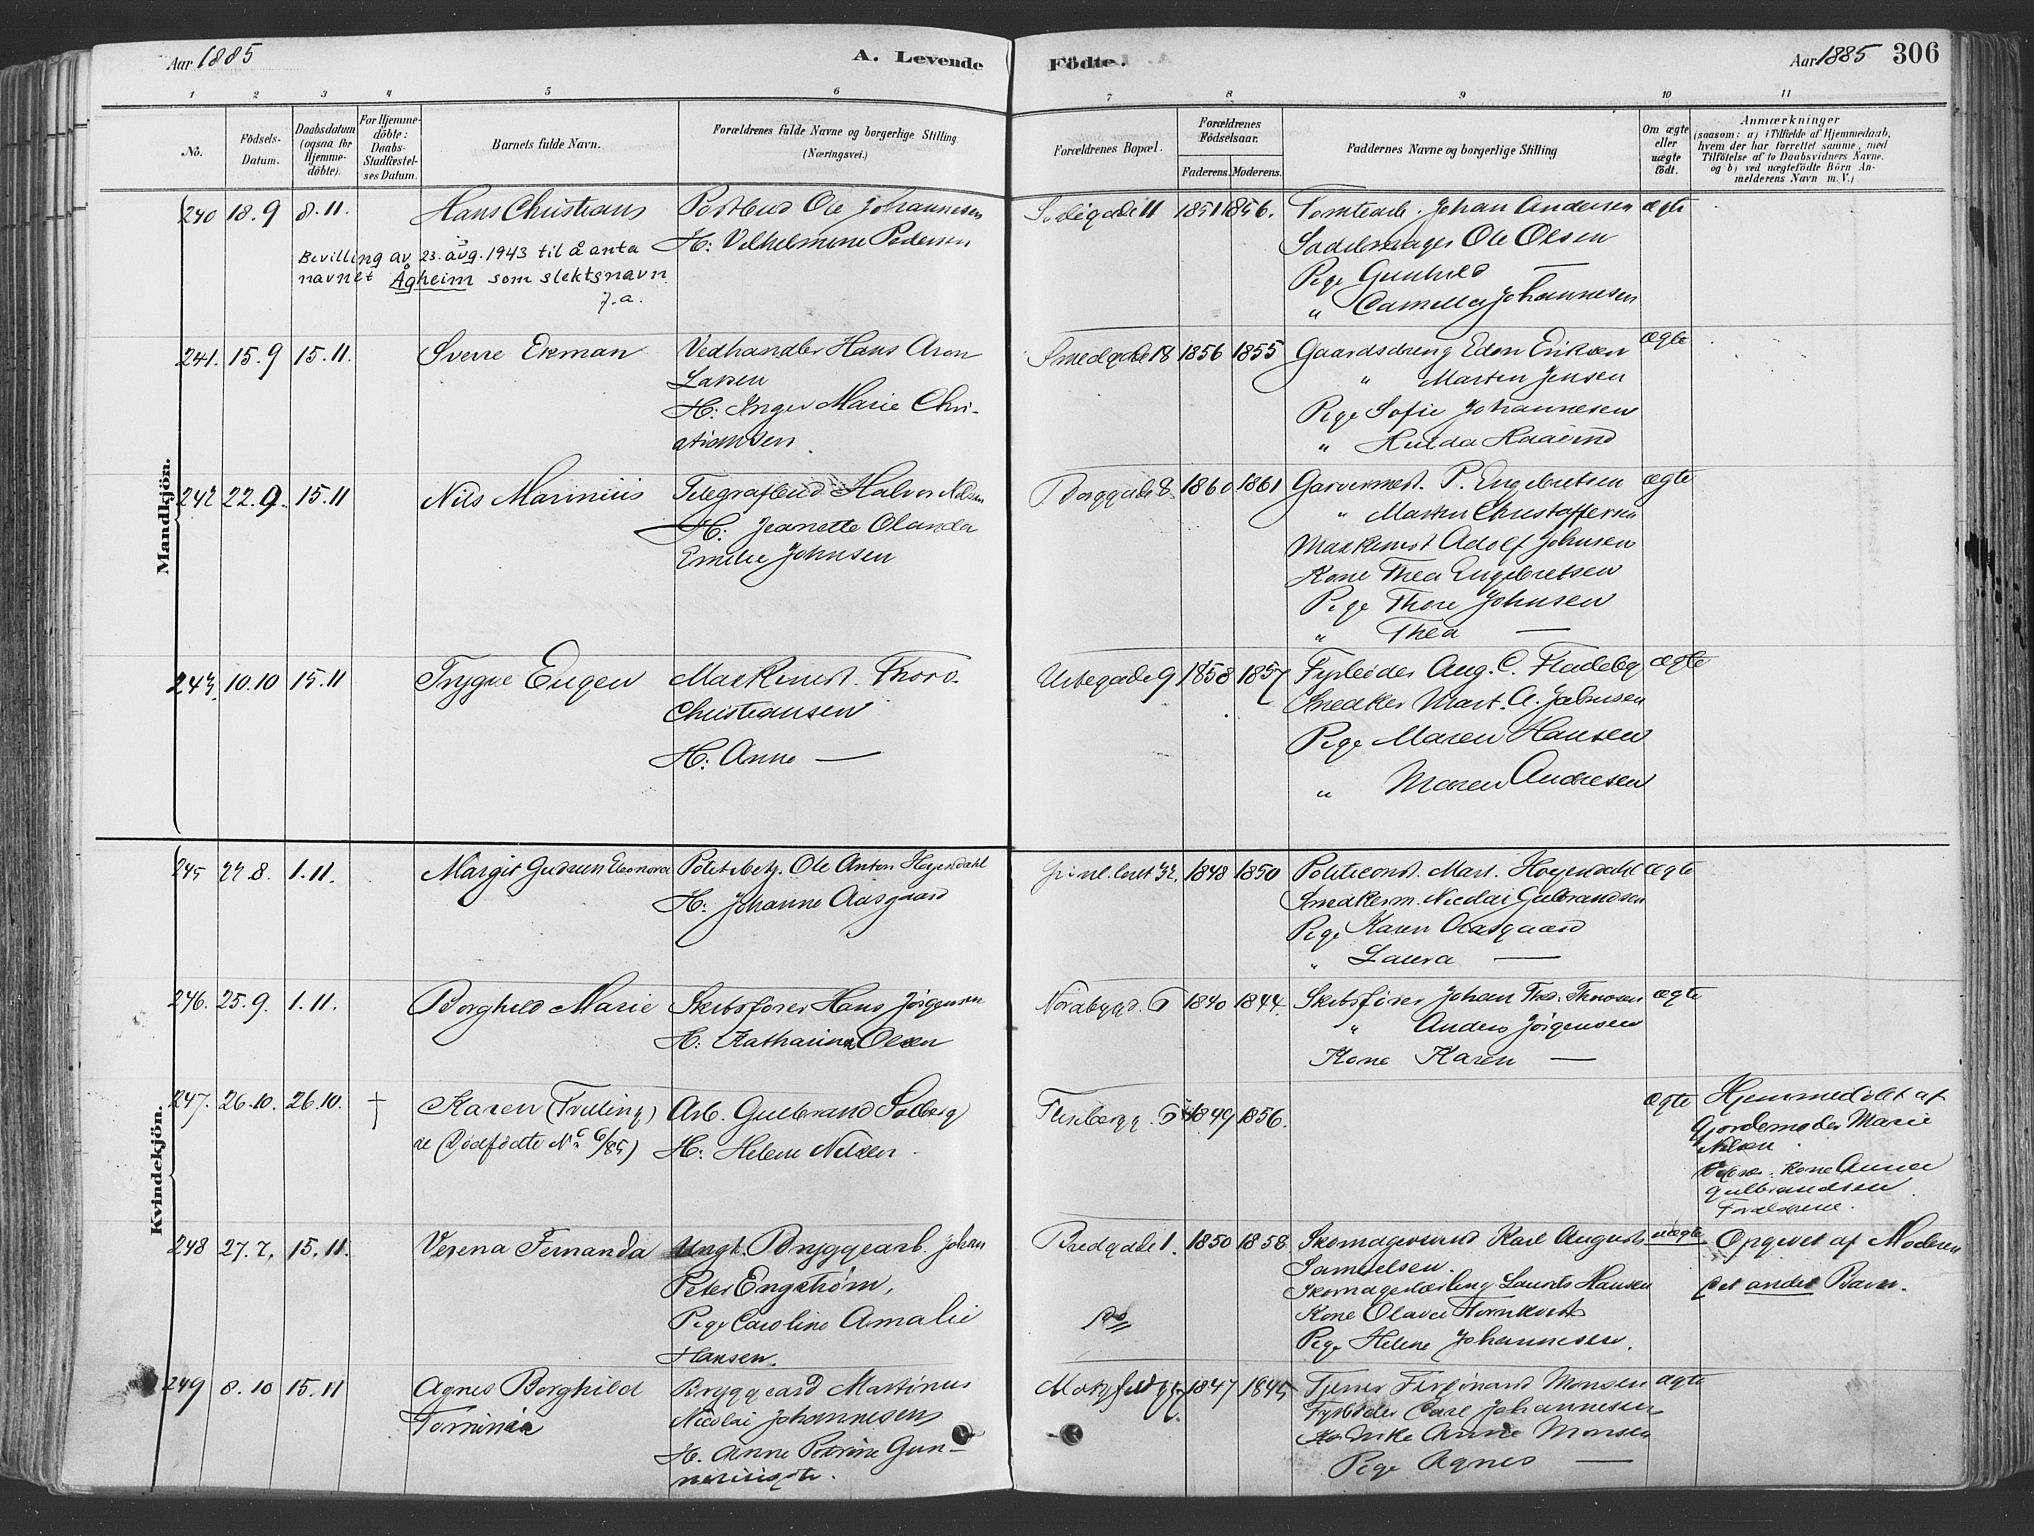 Aar 1885
A. Levende
Födte.
Aar 1885 306
1 2 3 4 5 6 7 8 9 10 11
No.
Födsels-
Datum.
Daabsdatum
(ogsaa for
Hjemme-
döbte).
For Hjemme-
döbte:
Daabs-
Stadfæstel-
ses Datum.
Barnets fulde Navn.
Forældrenes fulde Navne og borgerlige Stilling
(Næringsvei.)
Forældrenes Bopæl.
Forældrenes
Födselsaar.
Faderens. Moderens.
Faddernes Navne og borgerlige Stilling
Om ægte
eller
uægte
födt.
Anmærkninger
(saasom: a) i Tilfælde af Hjemmedaab,
hvem der har forrettet samme, med
Tilföielse af to Daabsvidners Navne.
og b) ved uægtefödte Börn An-
melderens Navn m. V.)
Mandkjön.
240 18.9 8.11. Hans Christians Postbud Ole Johannesen 11 1851 1856. Johan Andersen ægte
H: Vilhelmine Pedersen
Sadelmager Ole Olsen
Bevilling av 23. aug. 1943 til å anta
navnet Ågheim som slektsnavn
J.a.
Pige Gunhild —
" Camilla Johannesen
241. 15.9 15.11. Sverre Ekman Vedhandler Hans Aron Smedgade 18 1856 1855 Gaardsdreng Edon Eriksen ægte
Larsen
" Marten Jensen
H: Inger Marie Chri-
Pige Sofie Johannesen
stiansen
" Hulda
242 22.9. 15.11 Nils Marinius Telegrafbud Halvor Nilsen Borggade 8 1860 1861 Garvermest. P. Engebretsen ægte
H: Jeanette Olanda
" Marten Christoffersen
Emilie Johnsen
Maskinist Adolf Johnsen
Kone Thea Engebretsen
Pige Thora Johnsen
" Thea —
243. 10.10 15.11 Trygve Eugen Maskinist. Thorv. Urtegade 9 1858 1857 Fyrbøder Aug. C. Fladeby ægte
Christiansen
Snedker Mart. A. Jabnsen
H: Anne —
Pige Maren Hansen
" Maren Andresen
Kvindekjön.
245 27.8. 1.11. Margit Gudrun Eleonora Politibetj. Ole Anton Høyendahl 32. 1848 1850 Politiconst. Mart. Høyendahl ægte
H: Johanne Aasgaard
Snedkerm. Nicolai Gulbrandsen
Pige Karen Aasgaard
" Laura —
246. 25.9. 1.11. Borghild Marie Skibsfører Hans Jörgensen Nordbygd. 5 1840 1844. Skibsfører Johan Thoresen ægte
H. Katharina Olsen
" Anders Jörgensen
Kone Karen —
247. 26.10. 26.10. † Karen (Tvilling) Arb. Gulbrand Solberg Flisbergg. 5 1849 1856. ægte Hjemmedøbt af
re (Dødfødte No 6/85) H: Helene Nilsen.
Gjordemoder Marie
Nilsen.
Kone Anna
Gulbrandsen.
Forældrene.
248 27.7. 15.11. Verena Fernanda Ungk. Bryggearb. Johan Bredgade 1. 1850 1858 Skomagersvend Karl August uægte Opgivet af Moderen
Peter Engstrøm,
Samuelsen.
Det andet Barn.
Skomagerlærling Laurits Hansen
Pige Caroline Amalie
Kone Olava Hornkvist
Hansen.
Pige Helene Johannesen.
249 8.10 15.11 Agnes Borghild Bryggeard Martinus 1847 1845 Tjener Ferdinand Monsen ægte
Nicolai Johannesen
Fyrbøder Carl Johannesen
H. Anne Petrine Gun-
Enke Anne Monsen
Pige Agnes —